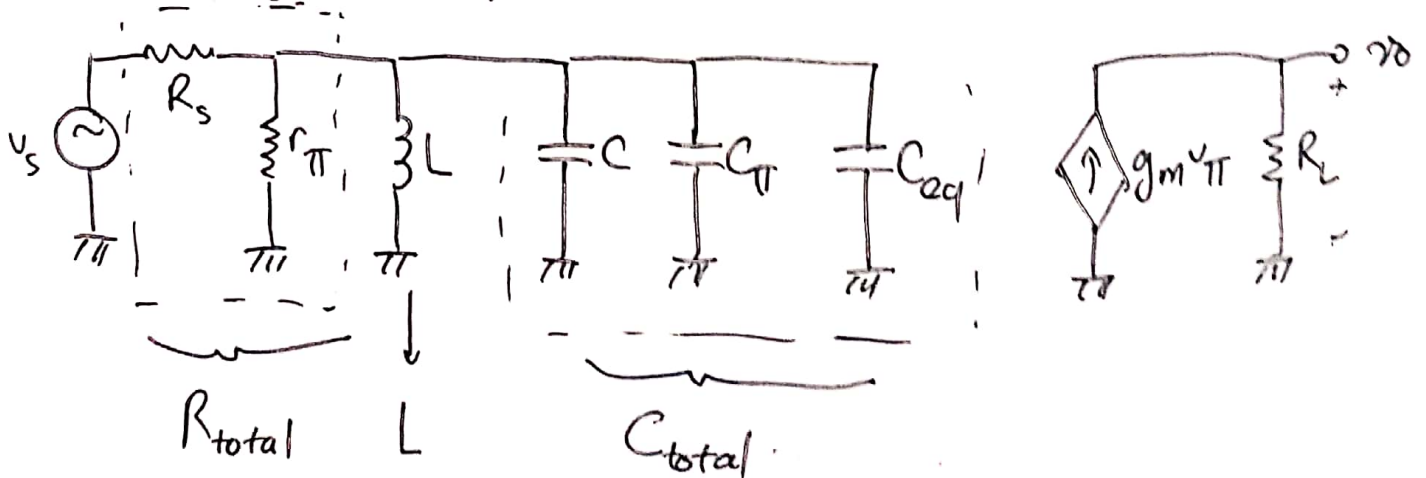 R_s
v_s
r_π
L
C
C_π
C_eq
g_m v_π
R_L
v_o
+
-
R_total
L
C_total